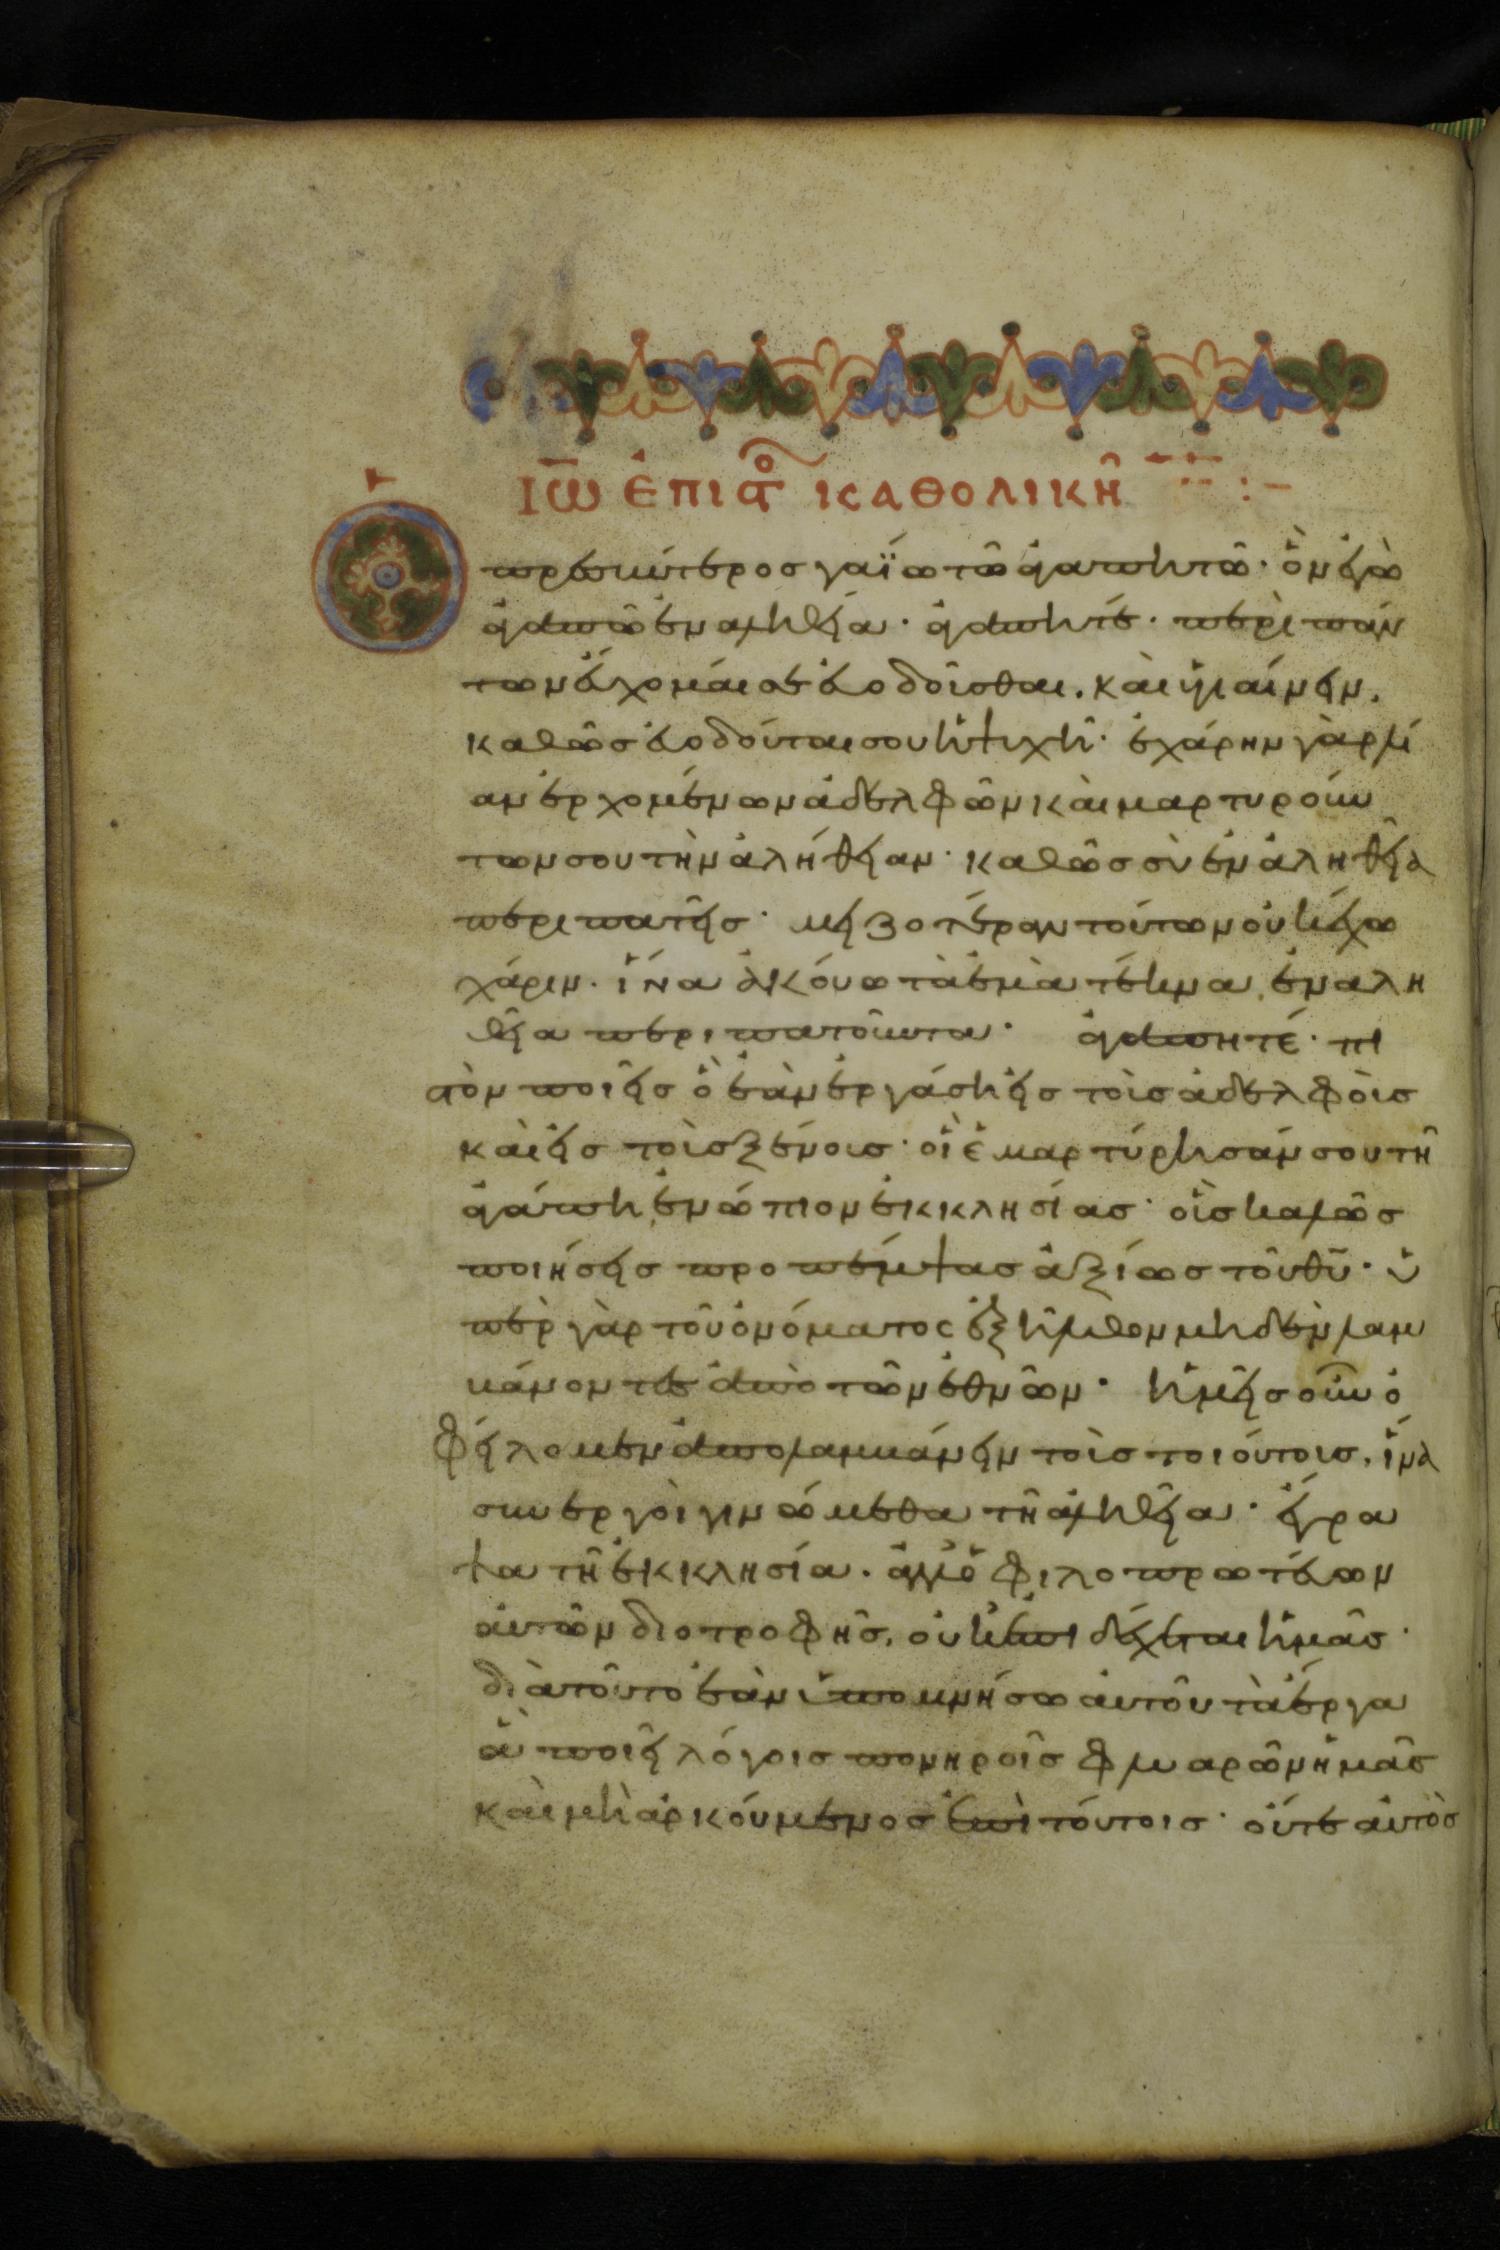 Ἰω ἐπιστο καθολικὴ γ :-
Ὁ πρεσβύτερος γαΐω τῶ ἀγαπητῶ· ὃν ἐγὼ
ἀγαπῶ ἐν ἀληθεία· ἀγαπητέ· περὶ πάν
των εὔχομαί σε εὐοδοῦσθαι. καὶ ὑγιαίνειν.
καθῶς εὐοδοῦται σου ἡ ψυχὴ· ἐχάρην γὰρ λί
αν ἐρχομένων ἀδελφῶν καὶ μαρτυρούν
των σου τὴν ἀλήθειαν· καθῶς σὺ ἐν ἀληθεία
περιπατεῖς· μειζοτέραν τούτων οὐκ ἔχω
χάριν. ἵνα ἀκούω τὰ ἐμὰ τέκνα ἐν αλη
θεία περιπατοῦντα· ἀγαπητέ· πι
στὸν ποιεῖς ὃ ἐὰν ἐργάση εἰς τοὶς ἀδελφοὶς
καὶ εἰς τοὶς ξένοις· οἳ ἐμαρτύρησάν σου τῆ
ἀγάπη ἐνώπιον ἐκκλησίας· οἷς καλῶς
ποιήσεις προπέμψας ἀξίως τοῦ θῦ· ὑ
πὲρ γὰρ τοῦ ὀνόματος ἐξῆλθον μηδὲν λαμ
βάνοντες ἀπὸ τῶν ἐθνῶν· ἡμεῖς οὖν ὀ
φείλομεν ἀπολαμβάνειν τοὶς τοιούτοις, ἵνα
συνεργοὶ γινώμεθα τῆ ἀληθεία· ἔγρα
ψα τῆ ἐκκλησία. ἀλλ' ὁ φιλοπρωτεύων
αὐτῶν διοτροφῆς, οὐκ ἐπιδέχεται ἡμᾶς·
διὰ τοῦτο ἐὰν ἔλθω ὑπομνήσω αὐτοῦ τὰ ἔργα
ἃ ποιεῖ λόγοις πονηροῖς φλυαρῶν ἡμᾶς
καὶ μὴ ἀρκούμενος ἐπὶ τούτοις· οὔτε αὐτὸς